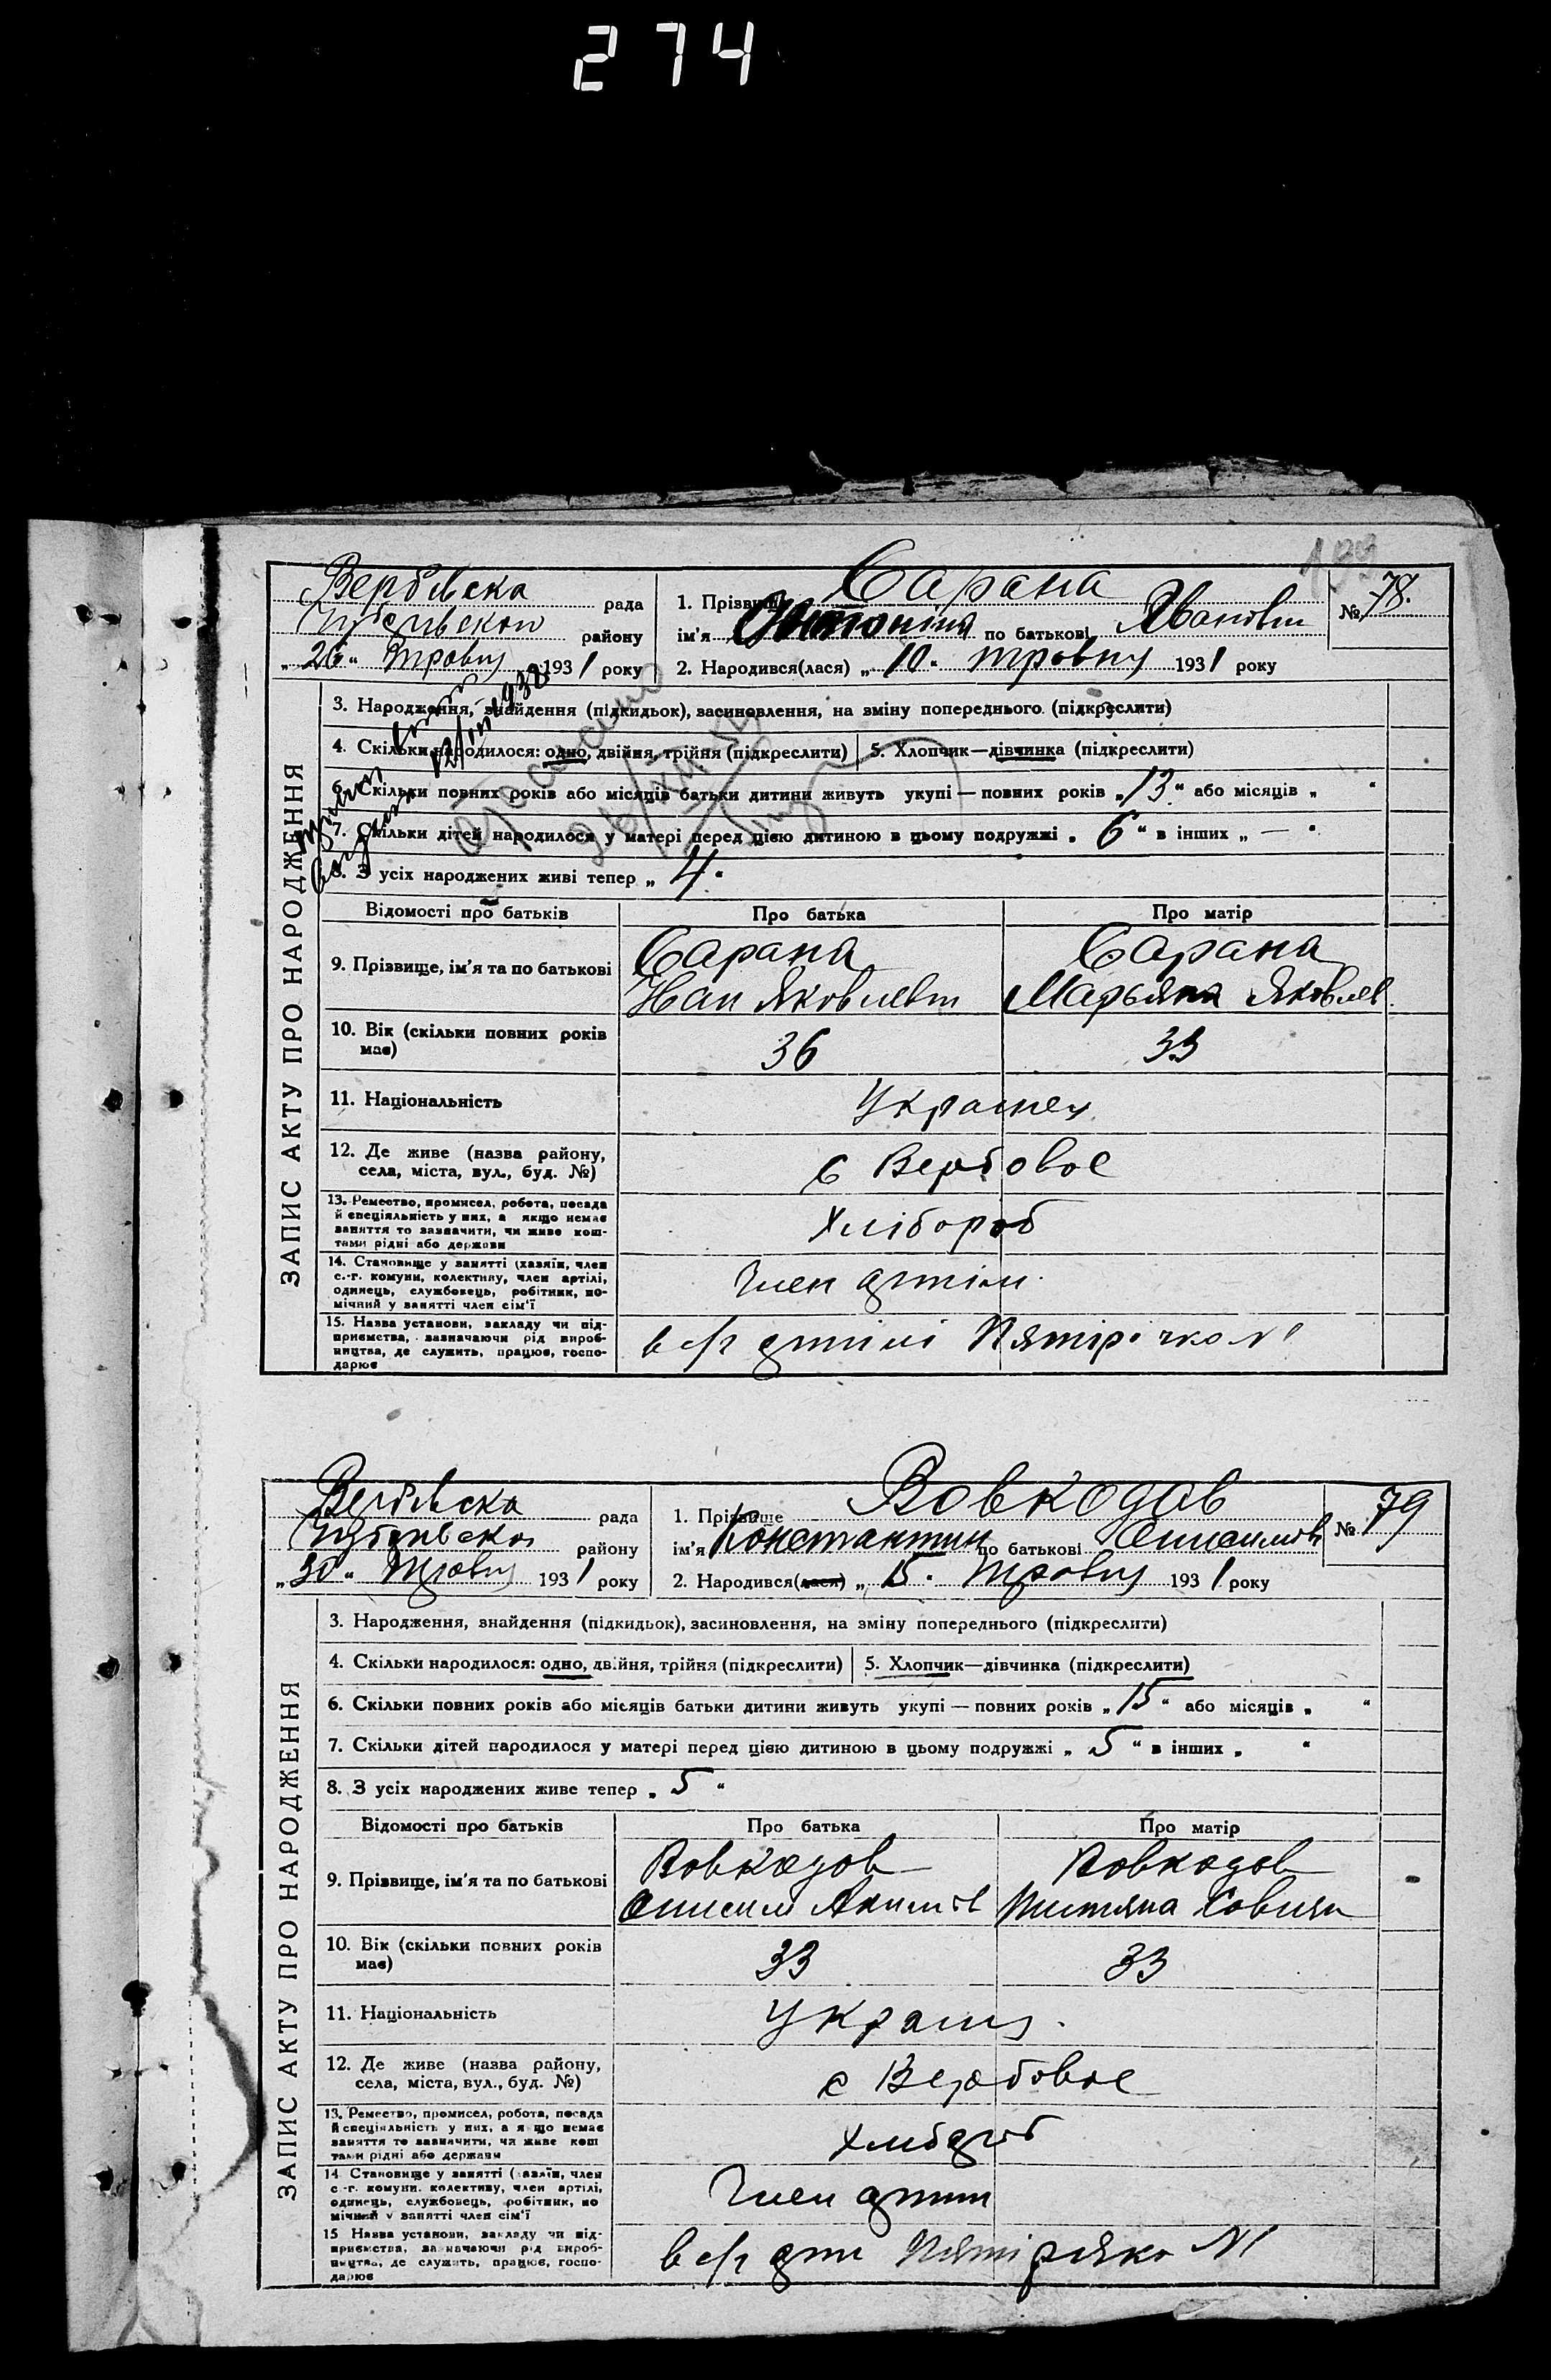 274
133
Вербівска рада
району
„ 26 “ Травня 1931 року
1. Прізвище Сарана
ім'я Антоніна по батькові Івановн
2. Народився(лася) „ 10 “ Травня 1931 року
№ 78.
ЗАПИС АКТУ ПРО НАРОДЖЕННЯ
3. Народження, знайдення (підкидьок), засиновлення, на зміну попереднього (підкреслити)
4. Скільки народилося: одно, двійня, трійня (підкреслити) 5. Хлопчик—дівчинка (підкреслити)
6. Скільки повних років або місяців батьки дитини живуть укупі — повних років „ 13 “ або місяців „ “
7. Скільки дітей народилося у матері перед цією дитиною в цьому подружжі „ 6 “ в інших „ — “
8. З усіх народжених живі тепер „ 4 “
Відомості про батьків Про батька Про матір
9. Прізвище, ім'я та по батькові
Сарана Сарана
Іван Яковлевич Марьяна Яковлев.
10. Вік (скільки повних років має) 36 33
11. Національність Украінец
12. Де живе (назва району,
села, міста, вул., буд. №) с Вербовое
13. Ремество, промисел, робота, посада
й спеціяльність у них, а якщо немає
заняття то зазначити, чи живе кош-
тами рідні або держави
Хлібороб
14. Становище у занятті (хазяїн, член
с.-г. комуни, колективу, член артілі,
одинець, службовець, робітник, по-
мічний у занятті член сім'ї
Член артіли
15. Назва установи, закладу чи під-
приємства, зазначаючи рід вироб-
ництва, де служить, працює, госпо-
дарює
в с/г артілі Пятірічка №1
Вербівска рада
району
„ 30 “ Травня 1931 року
1. Прізвище Вовкодав
ім'я Константин по батькові Онисимов
2. Народився(лася) „ 15 “ Травня 1931 року
№ 79
ЗАПИС АКТУ ПРО НАРОДЖЕННЯ
3. Народження, знайдення (підкидьок), засиновлення, на зміну попереднього (підкреслити)
4. Скільки народилося: одно, двійня, трійня (підкреслити) 5. Хлопчик—дівчинка (підкреслити)
6. Скільки повних років або місяців батьки дитини живуть укупі — повних років „ 15 “ або місяців „ “
7. Скільки дітей народилося у матері перед цією дитиною в цьому подружжі „ 5 “ в інших „ “
8. З усіх народжених живе тепер „ 5 “
Відомості про батьків Про батька Про матір
9. Прізвище, ім'я та по батькові
Вовкодов Вовкодов
Онисим Акимов Титяна Савики
10. Вік (скільки повних років має) 33 33
11. Національність Украінц.
12. Де живе (назва району,
села, міста, вул., буд. №) с Вербовое
13. Ремество, промисел, робота, посада
й спеціяльність у них, а якщо немає
заняття то зазначити, чи живе кош
тами рідні або держави
Хлібороб
14 Становище у занятті (хазяїн, член
с.-г. комуни, колективу, член артілі,
одинець, службовець, робітник, по
мічний у занятті член сім'ї
Член артили
15 Назва установи, закладу чи під-
приємства, зазначаючи рід вироб-
ництва, де служить, працює, госпо-
дарює
в с/г арт Пятірічка №1